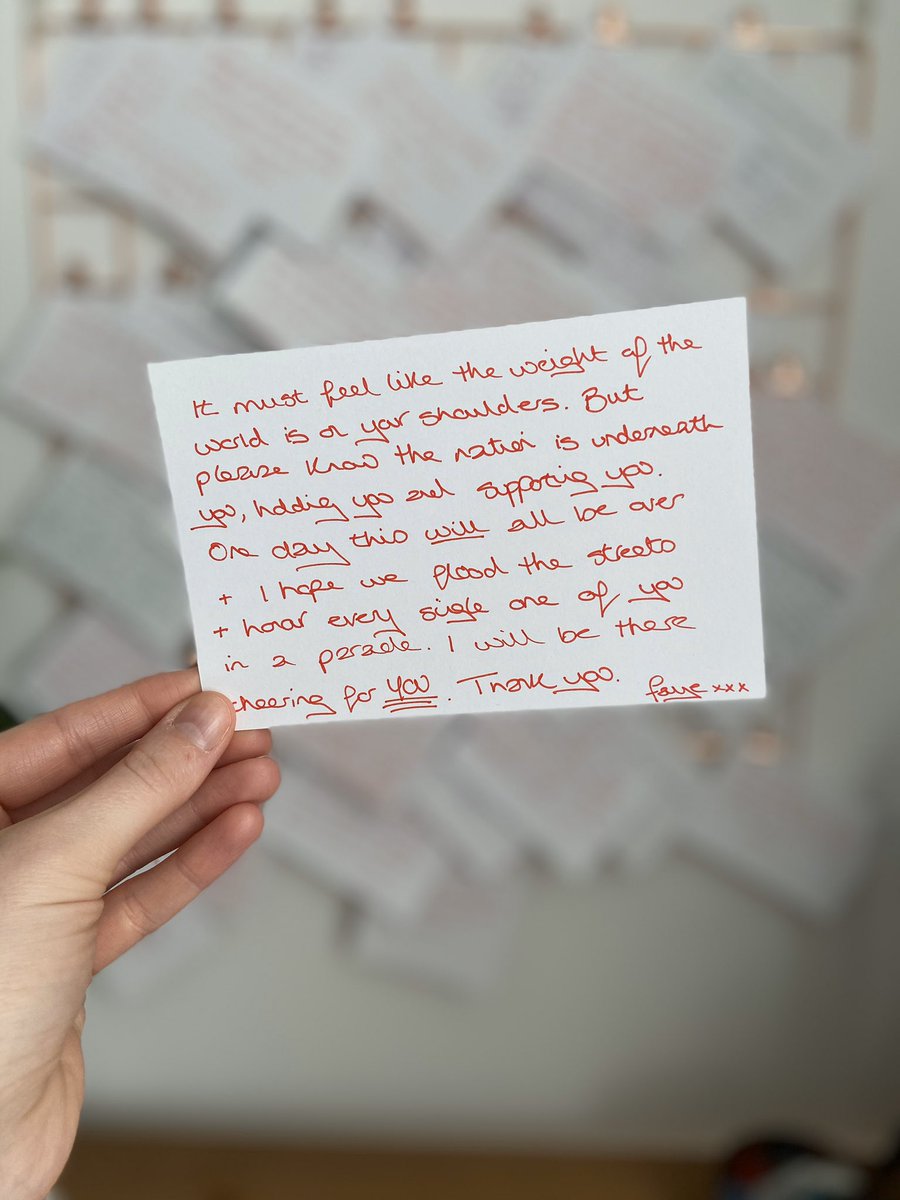 It must feel like the weight of the
world is on your shoulders. But
please know the nation is underneath
you, holding you and supporting you.
One day this will all be over
+ I hope we flood the streets
+ honour every single one of you
in a parade. I will be there
cheering for YOU. Thank you. Faye xxx